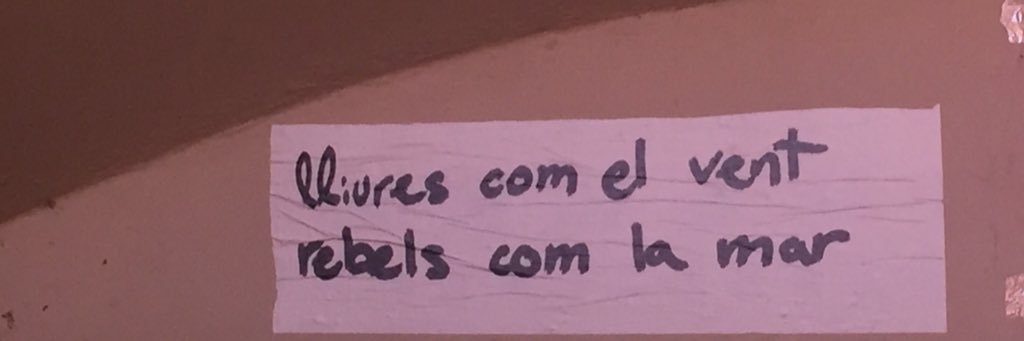 lliures com el vent
rebels com la mar